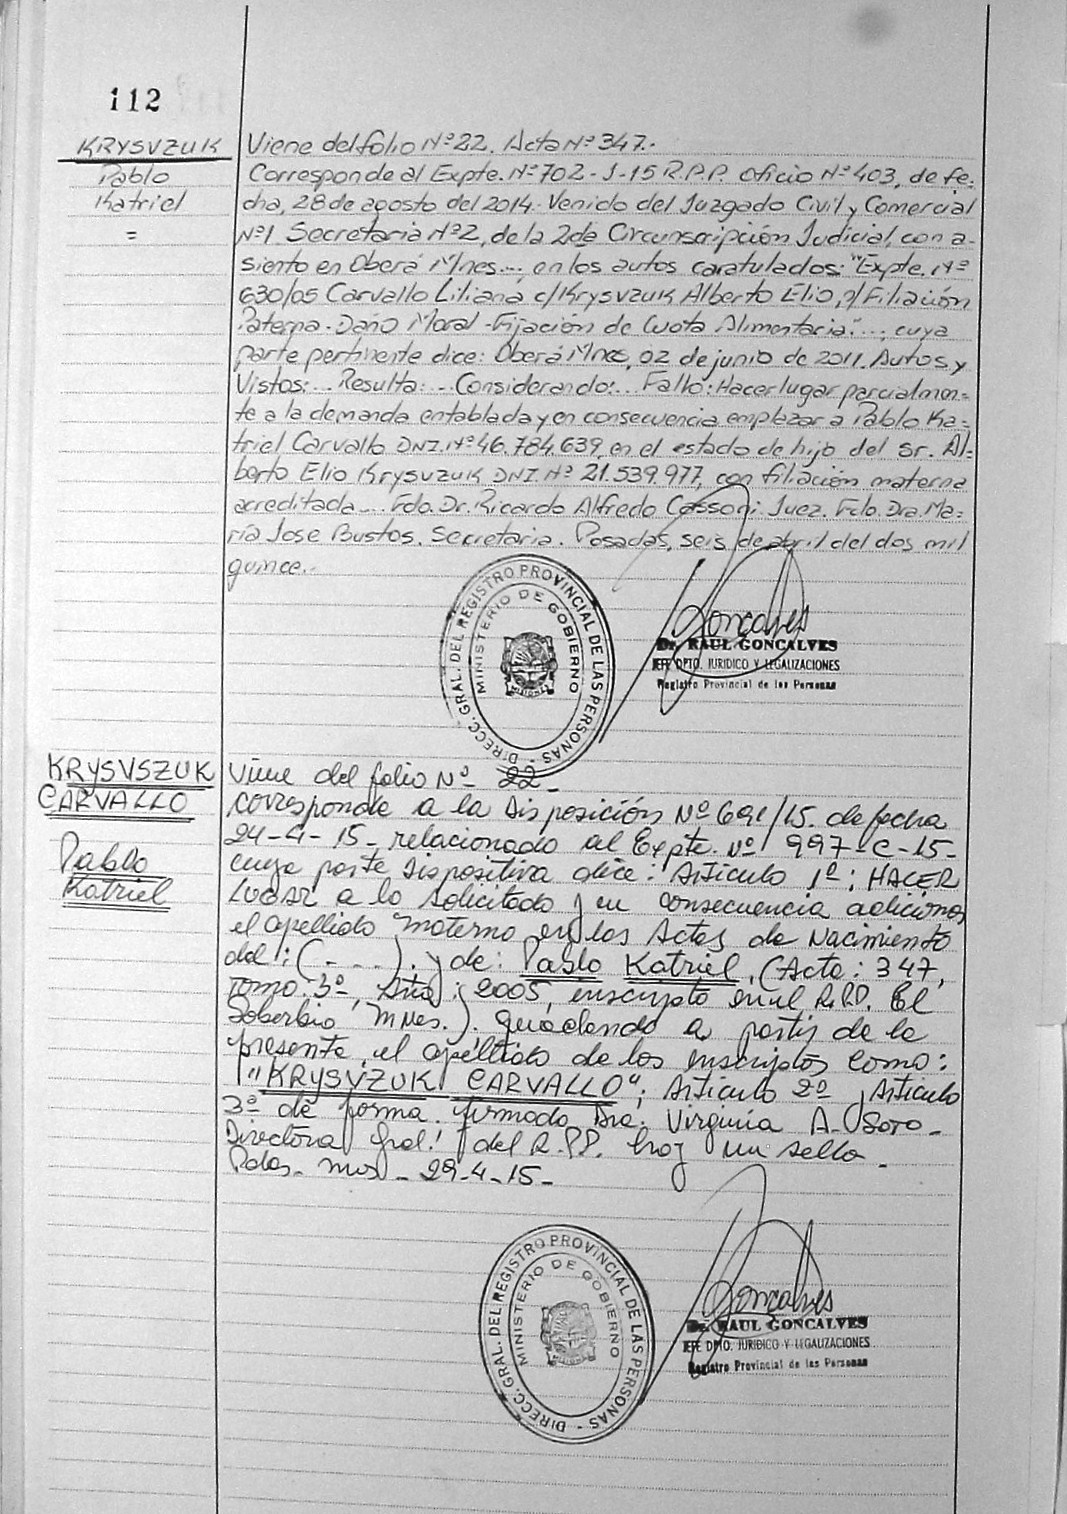 112
KRYSVZUK
Pablo
Katriel
=
Viene del folio Nº 22. Acta Nº 347.-
Corresponde al Expte. Nº 702-J-15 R.P.P. Oficio Nº 403, de fe-
cha, 28 de agosto del 2014. Venido del Juzgado Civil y Comercial
Nº1 Secretaria Nº2, de la 2da Circunscripción Judicial, con a-
siento en Oberá Mnes... en los autos caratulados: "Expte. Nº
630/05 Carvallo Liliana c/Krysvzuk Alberto Elio, s/Filiación
Paterna - Daño Moral - Fijación de Cuota Alimentaria"..., cuya
parte pertinente dice: Oberá Mnes, 02 de junio de 2011. Autos y
Vistos:... Resulta:... Considerando:... Fallo: Hacer lugar parcialmen-
te a la demanda entablada y en consecuencia emplazar a Pablo Ka-
triel Carvallo DNI. Nº 46.784.639, en el estado de hijo del Sr. Al-
berto Elio Krysvzuk DNI. Nº 21.539.977, con filiación materna
acreditada... Fdo. Dr. Ricardo Alfredo Cassoni. Juez. Fdo. Dra. Ma-
ría Jose Bustos. Secretaria. Posadas, seis de abril del dos mil
quince.-
DIRECC. GRAL. DEL REGISTRO PROVINCIAL DE LAS PERSONAS -
MINISTERIO DE GOBIERNO
MISIONES
Goncalves
Dr. RAUL GONCALVES
JEFE DPTO. JURIDICO Y LEGALIZACIONES
Registro Provincial de las Personas
KRYSVSZUK
CARVALLO
Pablo
Katriel
Viene del folio Nº 22-
corresponde a la Disposición Nº 691/15. de fecha
24-4-15- relacionado al Expte. Nº 997-C-15-
cuya parte dispositiva dice: Artículo 1º: HACER
LUGAR a lo solicitado y en consecuencia adicionar
el apellido materno en las Actas de Nacimiento
del: (- - - -). y de: Pablo Katriel, (Acta: 347,
Tomo: 3º, Año: 2005, inscripto en el R.P.P. El
Soberbio, Mnes.). quedando a partir de la
presente, el apellido de los inscriptos como:
"KRYSVZUK CARVALLO"; Artículo 2º, Artículo
3º de forma. firmado Dra. Virginia A. Soto-
Directora Gral. del R.P.P. hay un sello-
Pdas- mnes- 29-4-15-
DIRECC. GRAL. DEL REGISTRO PROVINCIAL DE LAS PERSONAS -
MINISTERIO DE GOBIERNO
Goncalves
Dr. RAUL GONCALVES
JEFE DPTO. JURIDICO Y LEGALIZACIONES
Registro Provincial de las Personas